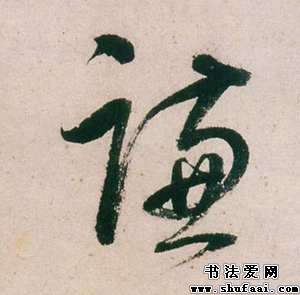 谦
书法爱网
www.shufaai.com